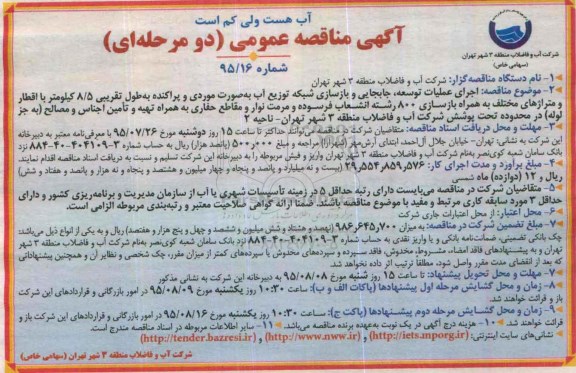 آب هست ولی کم است
آگهی مناقصه عمومی (دو مرحله‌ای)
شماره ۹۵/۱۶
شرکت آب و فاضلاب منطقه ۳ شهر تهران
(سهامی خاص)
۱- نام دستگاه مناقصه‌گزار: شرکت آب و فاضلاب منطقه ۳ شهر تهران
۲- موضوع مناقصه: اجرای عملیات توسعه، جابجایی و بازسازی شبکه توزیع آب به‌صورت موردی و پراکنده به‌طول تقریبی ۸/۵ کیلومتر با اقطار
و متراژهای مختلف به همراه بازسازی ۸۰۰ رشته انشعاب فرسوده و مرمت نوار و مقاطع حفاری به همراه تهیه و تأمین اجناس و مصالح (به جز
لوله) در محدوده تحت پوشش شرکت آب و فاضلاب منطقه ۳ شهر تهران- ناحیه ۲
۳- مهلت و محل دریافت اسناد مناقصه: متقاضیان شرکت در مناقصه می‌توانند حداکثر تا ساعت ۱۵ روز دوشنبه مورخ ۹۵/۰۷/۲۶ با معرفی‌نامه معتبر به دبیرخانه
این شرکت به نشانی: تهران- خیابان جلال آل‌احمد، ابتدای آرش‌مهر (مهناز) مراجعه و مبلغ ۵۰۰٫۰۰۰ (پانصد هزار) ریال به حساب شماره ۳-۴۰۴۱۰۹-۴۰-۸۸۴ نزد
بانک سامان شعبه کوی‌نصر به‌نام شرکت آب و فاضلاب منطقه ۳ شهر تهران واریز و فیش مربوطه را به دبیرخانه این شرکت تسلیم و نسبت به دریافت اسناد مناقصه اقدام نمایند.
۴- مبلغ برآورد و مدت اجرای کار: ۲۹٫۵۵۴٫۸۵۹٫۵۷۶ (بیست و نه میلیارد و پانصد و پنجاه و چهار میلیون و هشتصد و پنجاه و نه هزار و پانصد و هفتاد و شش)
ریال و ۱۲ (دوازده) ماه شمسی
۵- متقاضیان شرکت در مناقصه می‌بایست دارای رتبه حداقل ۵ در زمینه تأسیسات شهری یا آب از سازمان مدیریت و برنامه‌ریزی کشور و دارای
حداقل ۳ مورد سابقه کاری مرتبط و مفید با موضوع مناقصه باشند. ضمناً ارائه گواهی صلاحیت معتبر و رتبه‌بندی مربوطه الزامی است.
۶- محل اعتبار: از محل اعتبارات جاری شرکت
۷- مبلغ تضمین شرکت در مناقصه: به میزان ۹۸۶٫۶۴۵٫۷۰۰ (نهصد و هشتاد و شش میلیون و ششصد و چهل و پنج هزار و هفتصد) ریال و به یکی از انواع ذیل می‌باشد:
چک بانکی تضمینی، ضمانت‌نامه بانکی و یا واریز نقدی به حساب شماره ۳-۴۰۴۱۰۹-۴۰-۸۸۴ نزد بانک سامان شعبه کوی‌نصر به‌نام شرکت آب و فاضلاب منطقه ۳ شهر
تهران و به پیشنهادهای فاقد امضاء، مشروط، مخدوش، فاقد سپرده و سپرده‌های مخدوش یا سپرده‌های کمتر از میزان مقرر، چک شخصی و نظایر آن و همچنین پیشنهاداتی
که بعد از انقضای مدت مقرر واصل شود، مطلقاً ترتیب اثر داده نخواهد شد.
۷- مهلت و محل تحویل پیشنهاد: تا ساعت ۱۵ روز شنبه مورخ ۹۵/۰۸/۰۸ به دبیرخانه این شرکت به نشانی مذکور
۸- زمان و محل گشایش مرحله اول پیشنهادها (پاکات الف و ب): ساعت ۱۰:۳۰ روز یکشنبه مورخ ۹۵/۰۸/۰۹ در امور بازرگانی و قراردادهای این شرکت
باز و قرائت خواهند شد.
۹- زمان و محل گشایش مرحله دوم پیشنهادها (پاکت ج): ساعت ۱۰:۳۰ روز یکشنبه مورخ ۹۵/۰۸/۱۶ در امور بازرگانی و قراردادهای این شرکت باز و
قرائت خواهند شد. ۱۰- هزینه درج آگهی در یک نوبت به‌عهده برنده مناقصه می‌باشد. ۱۱- سایر اطلاعات مربوطه در اسناد مناقصه مندرج است.
نشانی‌های سایت اینترنتی: (http://iets.mporg.ir) و (http://www.nww.ir) و (http://tender.bazresi.ir)
شرکت آب و فاضلاب منطقه ۳ شهر تهران (سهامی خاص)